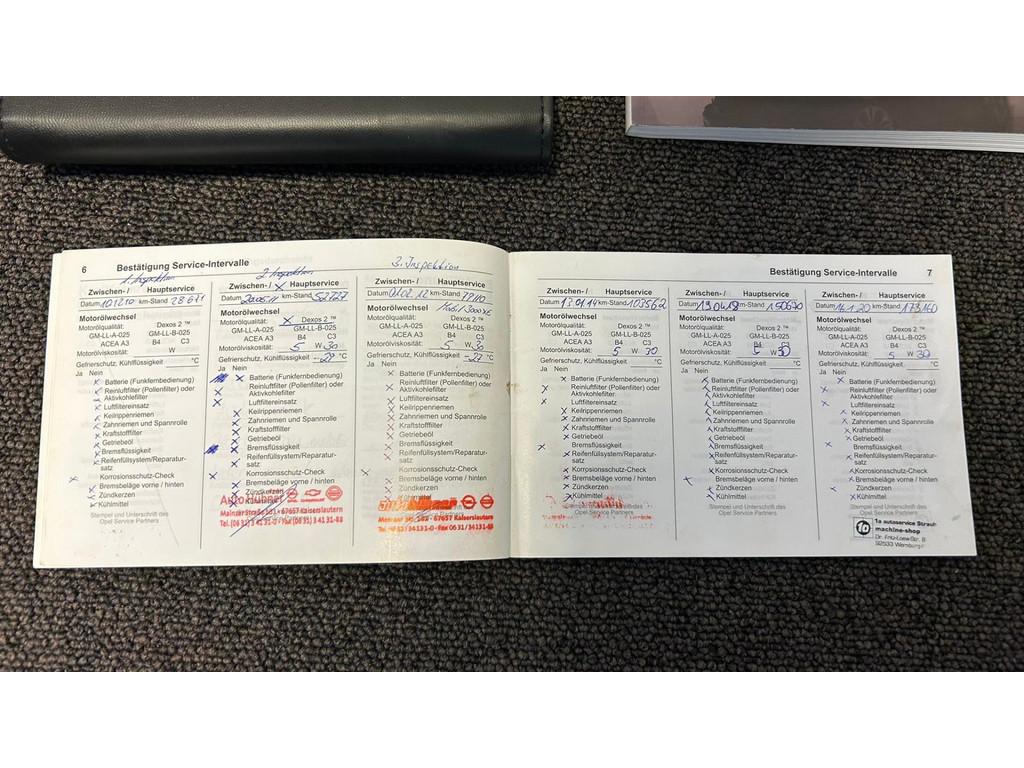 6 Bestätigung Service-Intervalle
1. Inspektion
Zwischen- / Hauptservice
Datum 10.12.10 km-Stand 28671
Motorölwechsel
Motorölqualität: Dexos 2 ™
GM-LL-A-025 GM-LL-B-025
ACEA A3 B4 C3
Motorölviskosität: W
Gefrierschutz, Kühlflüssigkeit °C
Ja Nein
Batterie (Funkfernbedienung)
Reinluftfilter (Pollenfilter) oder
Aktivkohlefilter
Luftfiltereinsatz
Keilrippenriemen
Zahnriemen und Spannrolle
Kraftstofffilter
Getriebeöl
Bremsflüssigkeit
Reifenfüllsystem/Reparatur-
satz
Korrosionsschutz-Check
Bremsbeläge vorne / hinten
Zündkerzen
Kühlmittel
Stempel und Unterschrift des
Opel Service Partners
2. Inspektion
Zwischen- / X Hauptservice
Datum km-Stand 52727
Motorölwechsel
Motorölqualität: X Dexos 2 ™
GM-LL-A-025 GM-LL-B-025
ACEA A3 B4 C3
Motorölviskosität: 5 W 30
Gefrierschutz, Kühlflüssigkeit °C
Ja Nein
Batterie (Funkfernbedienung)
Reinluftfilter (Pollenfilter) oder
Aktivkohlefilter
Luftfiltereinsatz
Keilrippenriemen
Zahnriemen und Spannrolle
Kraftstofffilter
Getriebeöl
Bremsflüssigkeit
Reifenfüllsystem/Reparatur-
satz
Korrosionsschutz-Check
Bremsbeläge vorne / hinten
Zündkerzen
Mainzer Straße 67657 Kaiserslautern
3. Inspektion
Zwischen- / Hauptservice
Datum km-Stand
Motorölwechsel
Motorölqualität: Dexos 2 ™
GM-LL-A-025 GM-LL-B-025
ACEA A3 B4 C3
Motorölviskosität: 5 W 30
Gefrierschutz, Kühlflüssigkeit °C
Ja Nein
Batterie (Funkfernbedienung)
Reinluftfilter (Pollenfilter) oder
Aktivkohlefilter
Luftfiltereinsatz
Keilrippenriemen
Zahnriemen und Spannrolle
Kraftstofffilter
Getriebeöl
Bremsflüssigkeit
Reifenfüllsystem/Reparatur-
satz
Korrosionsschutz-Check
Bremsbeläge vorne / hinten
Zündkerzen
67657 Kaiserslautern
Bestätigung Service-Intervalle 7
Zwischen- / Hauptservice
Datum 13.01.14 km-Stand 103562
Motorölwechsel
Motorölqualität: Dexos 2 ™
GM-LL-A-025 GM-LL-B-025
ACEA A3 B4 C3
Motorölviskosität: 5 W 30
Gefrierschutz, Kühlflüssigkeit °C
Ja Nein
Batterie (Funkfernbedienung)
Reinluftfilter (Pollenfilter) oder
Aktivkohlefilter
Luftfiltereinsatz
Keilrippenriemen
Zahnriemen und Spannrolle
Kraftstofffilter
Getriebeöl
Bremsflüssigkeit
Reifenfüllsystem/Reparatur-
satz
Korrosionsschutz-Check
Bremsbeläge vorne / hinten
Zündkerzen
Kühlmittel
Opel Service Partners
Zwischen- / Hauptservice
Datum 19.04.18 km-Stand
Motorölwechsel
Motorölqualität: Dexos 2 ™
GM-LL-A-025 GM-LL-B-025
ACEA A3 B4 C3
Motorölviskosität: 5 W 30
Gefrierschutz, Kühlflüssigkeit °C
Ja Nein
Batterie (Funkfernbedienung)
Reinluftfilter (Pollenfilter) oder
Aktivkohlefilter
Luftfiltereinsatz
Keilrippenriemen
Zahnriemen und Spannrolle
Kraftstofffilter
Getriebeöl
Bremsflüssigkeit
Reifenfüllsystem/Reparatur-
satz
Korrosionsschutz-Check
Bremsbeläge vorne / hinten
Zündkerzen
Kühlmittel
Stempel und Unterschrift des
Opel Service Partners
Zwischen- / Hauptservice
Datum 16.1.20 km-Stand 173160
Motorölwechsel
Motorölqualität: Dexos 2 ™
GM-LL-A-025 GM-LL-B-025
ACEA A3 B4 C3
Motorölviskosität: 5 W 30
Gefrierschutz, Kühlflüssigkeit °C
Ja Nein
Batterie (Funkfernbedienung)
Reinluftfilter (Pollenfilter) oder
Aktivkohlefilter
Luftfiltereinsatz
Keilrippenriemen
Zahnriemen und Spannrolle
Kraftstofffilter
Getriebeöl
Bremsflüssigkeit
Reifenfüllsystem/Reparatur-
satz
Korrosionsschutz-Check
Bremsbeläge vorne / hinten
Zündkerzen
Kühlmittel
Stempel und Unterschrift des
Opel Service Partners
1a autoservice Strauß
machine-shop